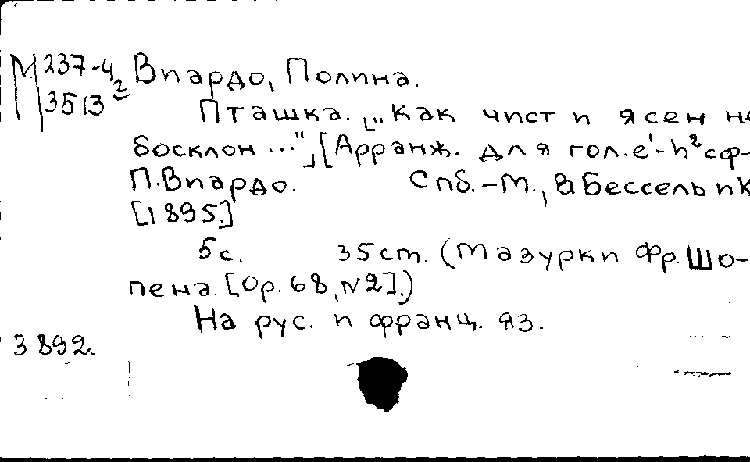 М 237-4 2 Виардо, Полина.
3513
Пташка. [„Как чист и ясен не-
босклон ..."], [Арранж. для гол. e¹-h² с ф-
П. Виардо. Спб.-М., В. Бессель и К
[1895.]
5 с. 35 cm. (Мазурки Фр. Шо-
пена. [Op. 68, N2].)
На рус. и франц. яз.
3892.